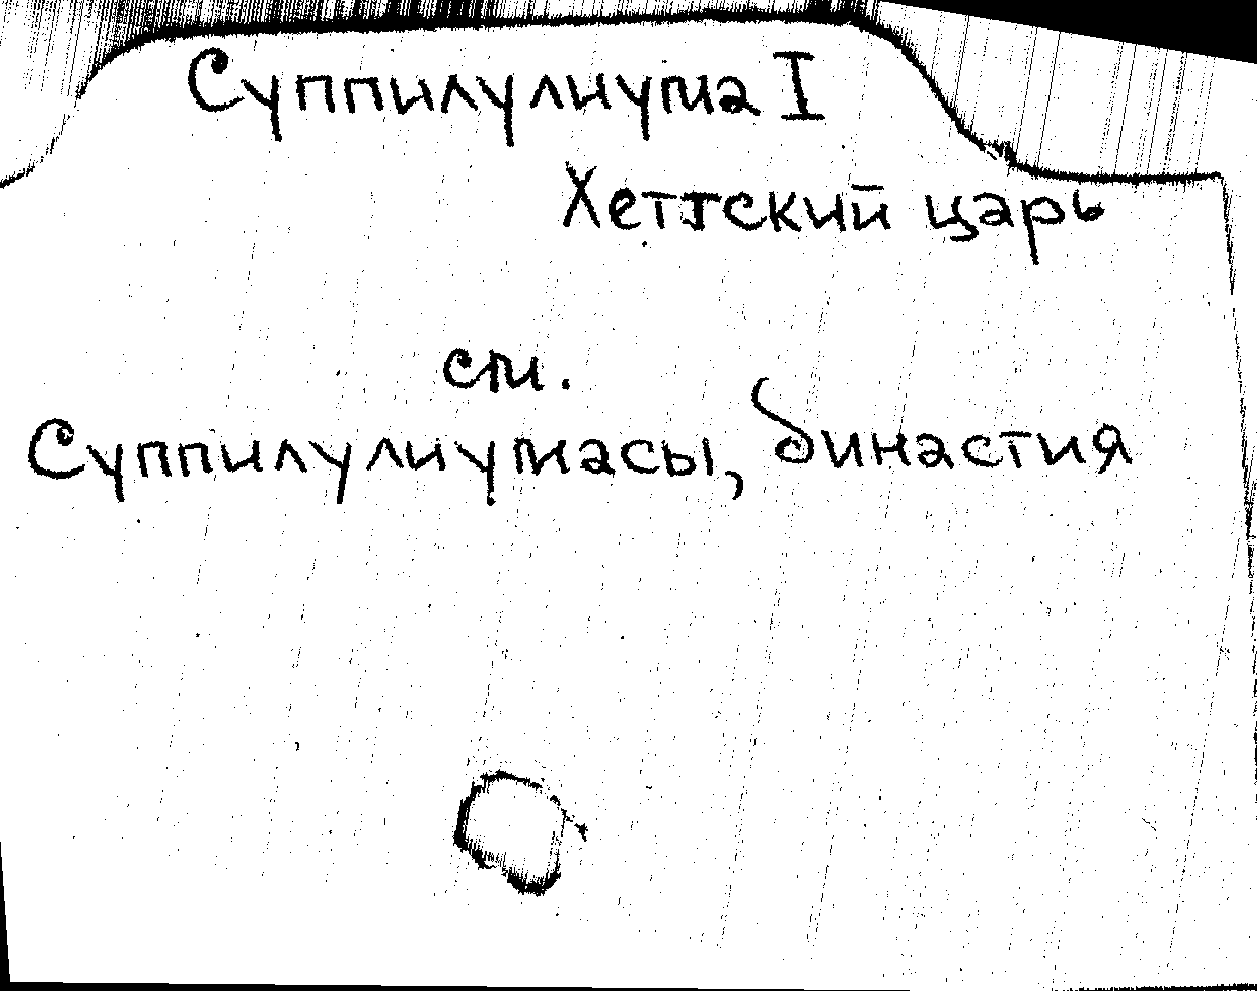 Суппилулиума I
Хеттский царь
см.
Суппилулиумасы, династия